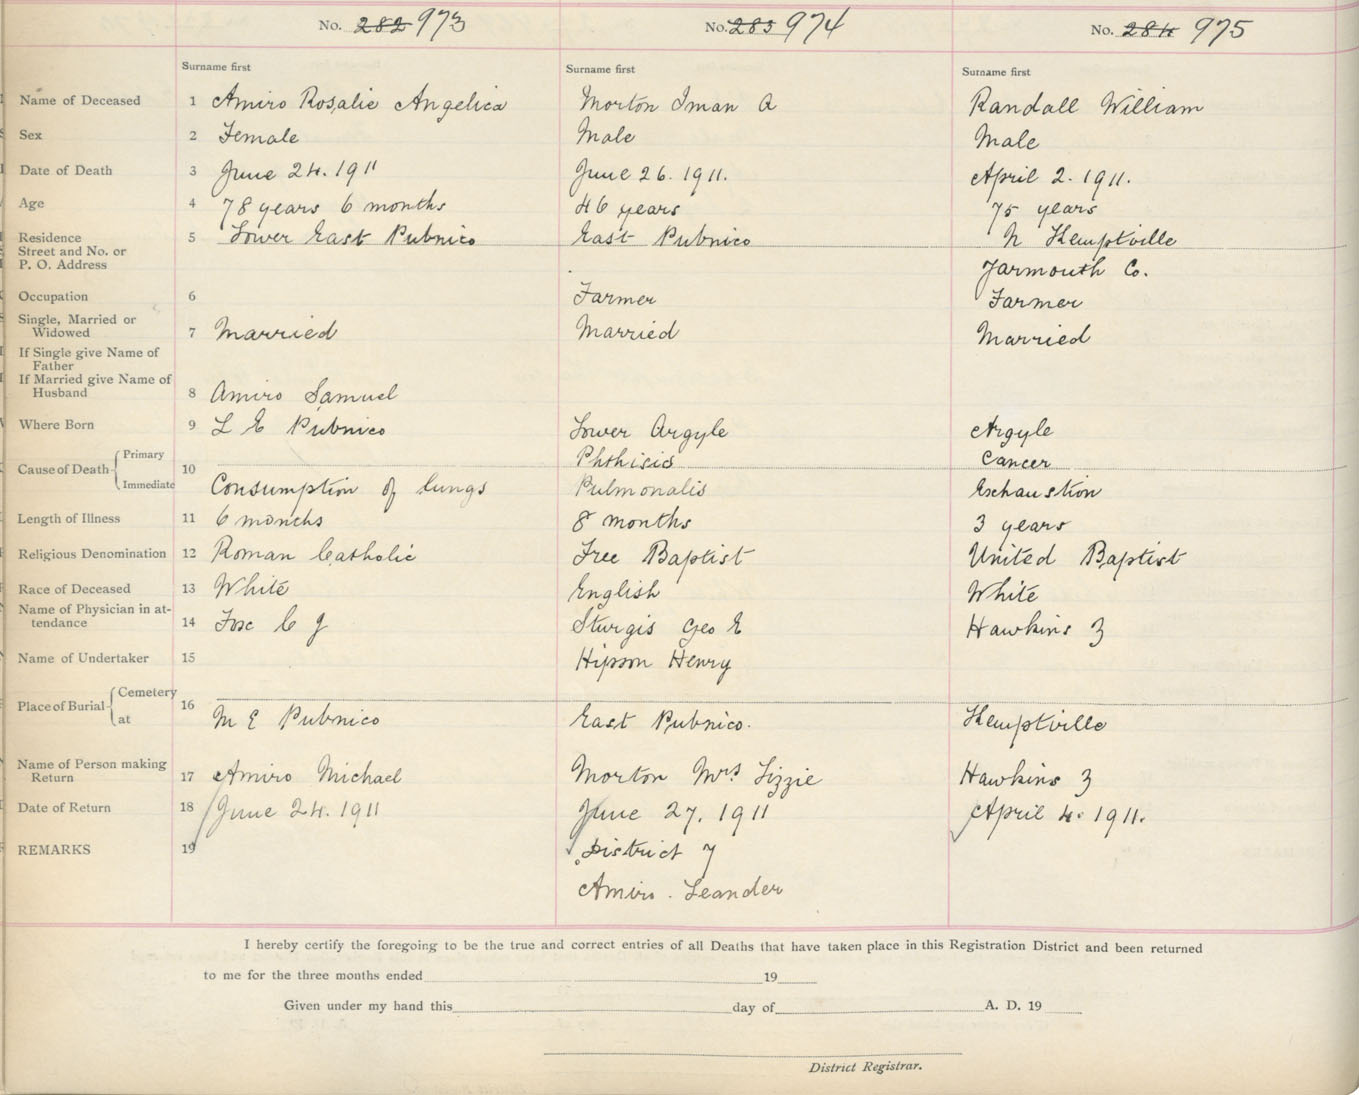 No. 282 973 No. 283 974 No. 284 975
Surname first Surname first Surname first
Name of Deceased 1 Amiro Rosalie Angelica Morton Iman A Randall William
Sex 2 Female Male Male
Date of Death 3 June 24. 1911 June 26. 1911. April 2. 1911.
Age 4 78 years 6 months 46 years 75 years
Residence 5 Lower East Pubnico East Pubnico N Kemptville
Street and No. or
P. O. Address Yarmouth Co.
Occupation 6 Farmer Farmer
Single, Married or
Widowed 7 Married Married Married
If Single give Name of
Father
If Married give Name of
Husband 8 Amiro Samuel
Where Born 9 L E Pubnico Lower Argyle Argyle
Primary Phthisis Cancer
Cause of Death 10
Immediate Consumption of lungs Pulmonalis Exhaustion
Length of Illness 11 6 months 8 months 3 years
Religious Denomination 12 Roman Catholic Free Baptist United Baptist
Race of Deceased 13 White English White
Name of Physician in at-
tendance 14 Fox C J Sturgis Geo E Hawkins Z
Name of Undertaker 15 Hipson Henry
Cemetery
Place of Burial 16
at M E Pubnico East Pubnico. Kemptville
Name of Person making
Return 17 Amiro Michael Morton Mrs Lizzie Hawkins Z
Date of Return 18 June 24. 1911 June 27, 1911 April 4. 1911.
REMARKS 19 District 7
Amiro. Leander
I hereby certify the foregoing to be the true and correct entries of all Deaths that have taken place in this Registration District and been returned
to me for the three months ended 19
Given under my hand this day of A. D. 19
District Registrar.